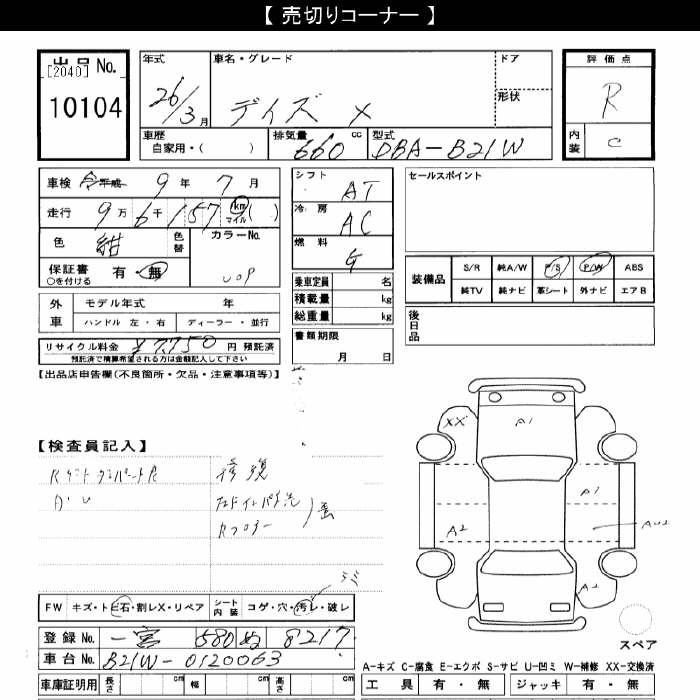 【 売切りコーナー 】
出品 No.
[2040]
10104
年式 26/3月
車名・グレード デイズ X
ドア
形状
評価点 R
内装 C
車歴
自家用・( )
排気量 660 cc
型式 DBA-B21W
車検 令 平成 9年 7月
走行 9万 6千 157 km マイル( )
色 紺
色替
カラーNo.
保証書 有・無
○を付ける
外車 モデル年式 年
ハンドル 左・右 ディーラー・並行
リサイクル料金 ¥7,750 円 預託済
預託済で積算希望される方は金額記入して下さい
シフト AT
冷房 AC
燃料 G
乗車定員 名
積載量 kg
総重量 kg
書類期限
月 日
セールスポイント
装備品 S/R 純A/W P/S P/W ABS
純TV 純ナビ 革シート 外ナビ エアB
後日品
【出品店申告欄(不良箇所・欠品・注意事項等)】
【検査員記入】
修復
XX
A1
A1
A2
FW キズ・トビ石・割レX・リペア シート内装 コゲ・穴・汚レ・破レ
登録 No. 一宮 580 ぬ 8217
車台 No. B21W-0120063
車庫証明用 長さ cm 幅 cm 高さ cm
スペア
A-キズ C-腐食 E-エクボ S-サビ U-凹ミ W-補修 XX-交換済
工具 有・無 ジャッキ 有・無